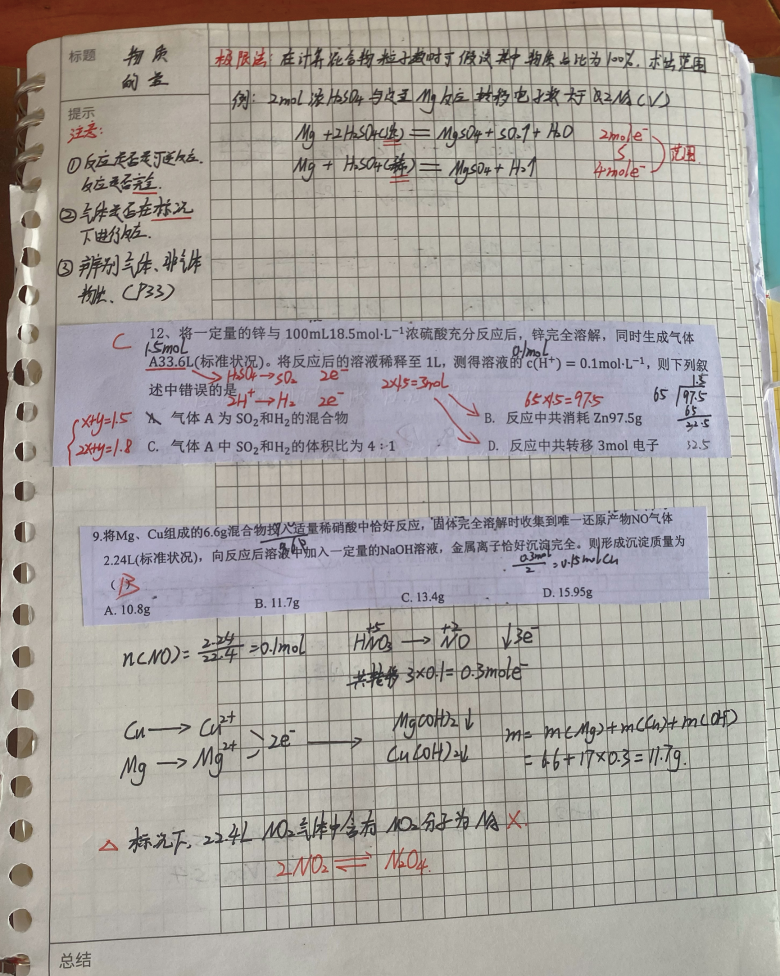 标题 物质
的量
极限法: 在计算混合物粒子数时可假设其中物质占比为100%, 求出范围
例: 2mol浓H₂SO₄与足量Mg反应 转移电子数大于2NA (√)
Mg+2H₂SO₄(浓)══MgSO₄+SO₂↑+H₂O 2mole⁻
Mg + H₂SO₄(稀)══MgSO₄+H₂↑ 4mole⁻
范围
提示
注意:
①反应是否是可逆反应.
反应是否完全.
②气体是否在标况
下进行反应.
③ 辨别气体、非气体
物质. (P33)
C
12、将一定量的锌与 100mL18.5mol·L⁻¹浓硫酸充分反应后，锌完全溶解，同时生成气体
1.5mol
0.1mol
A33.6L(标准状况)。将反应后的溶液稀释至 1L，测得溶液的 c(H⁺) = 0.1mol·L⁻¹，则下列叙
述中错误的是
H₂SO₄→SO₂ 2e⁻
2H⁺→H₂ 2e⁻
2×1.5=3mol
65×1.5=97.5
65 1.5
97.5
65
32.5
32.5
x+y=1.5
2x+y=1.8
A. 气体 A 为 SO₂和H₂的混合物
B. 反应中共消耗 Zn97.5g
C. 气体 A 中 SO₂和H₂的体积比为 4∶1
D. 反应中共转移 3mol 电子
9.将Mg、Cu组成的6.6g混合物投入适量稀硝酸中恰好反应，固体完全溶解时收集到唯一还原产物NO气体
2.24L(标准状况)，向反应后溶液中加入一定量的NaOH溶液，金属离子恰好沉淀完全。则形成沉淀质量为
0.3mol/2=0.15molCu
( B )
A. 10.8g
B. 11.7g
C. 13.4g
D. 15.95g
n(NO)=2.24/22.4=0.1mol
+5 +2
HNO₃ → NO ↓3e⁻
3×0.1=0.3mole⁻
Cu → Cu²⁺
Mg → Mg²⁺
2e⁻ →
Mg(OH)₂↓
Cu(OH)₂↓
m= m(Mg)+m(Cu)+m(OH)
= 6.6+17×0.3=11.7g.
△ 标况下, 22.4L NO₂气体中含有NO₂分子为NA ×
2NO₂ ⇌ N₂O₄.
总结